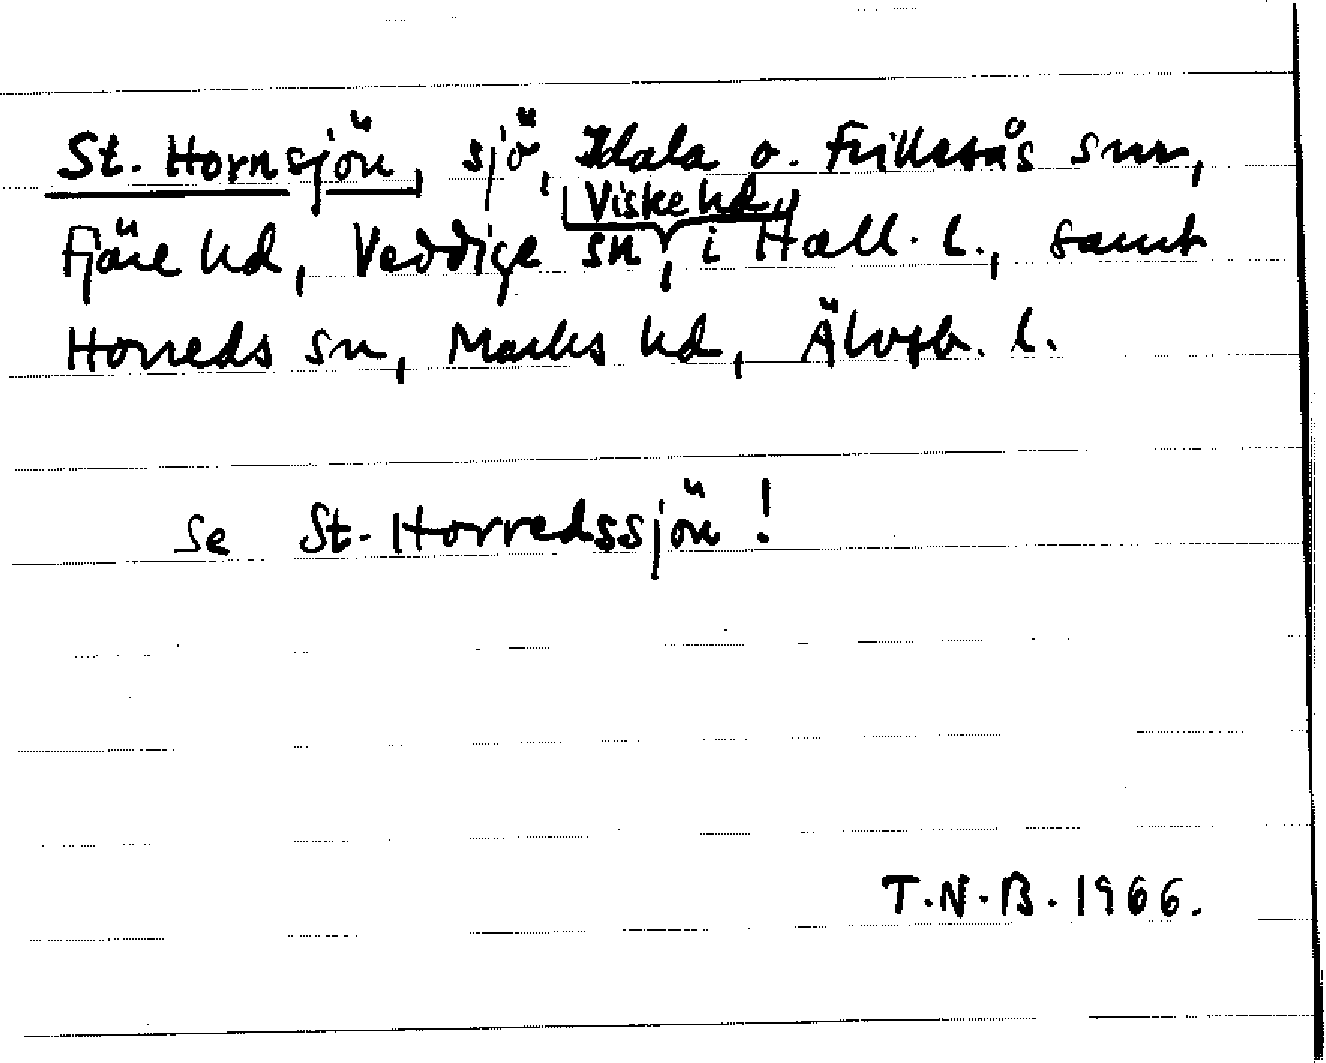 St. Hornsjön, sjö, Idala o. Frillesås snr,
Viske hd,
Fjäre hd, Veddige sn, i Hall. l., samt
Horreds sn, Marks hd, Älvsb. l.
Se St. Horredssjön!
T.N.B. 1966.